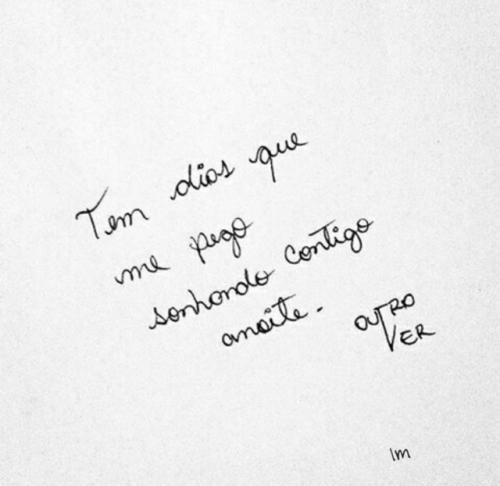 Tem dias que
me pego
sonhando contigo
anoite.
OUTRO
VER
1m